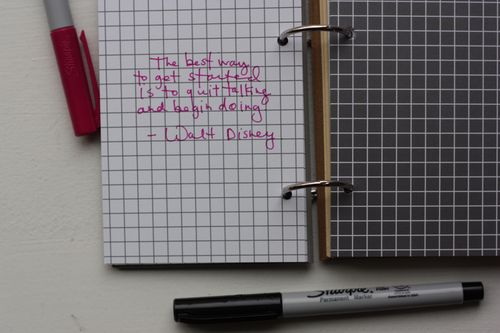 The best way
to get started
is to quit talking
and begin doing
- Walt Disney
Sharpie
Permanent Marker